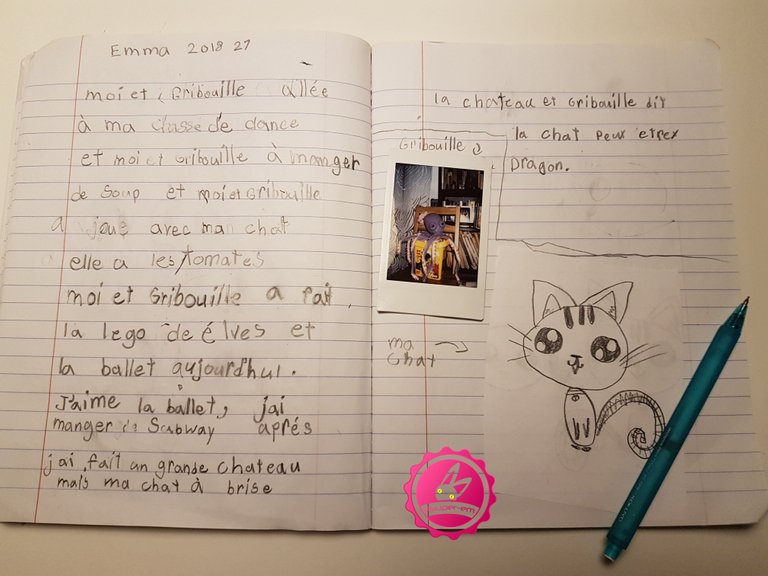 Emma 2018 27
moi et Gribouille allée
à ma classe de dance
et moi et Gribouille à manger
de soup et moi et Gribouille
a joue avec man chat
elle a les tomates
moi et Gribouille a fait
la lego de élves et
la ballet aujourdhui.
J'aime la ballet, jai
manger de Subway aprés
jai fait un grande chateau
mais ma chat à brise
la chateau et Gribouille dit
la chat peux etrex
Dragon.
Gribouille
ma
chat